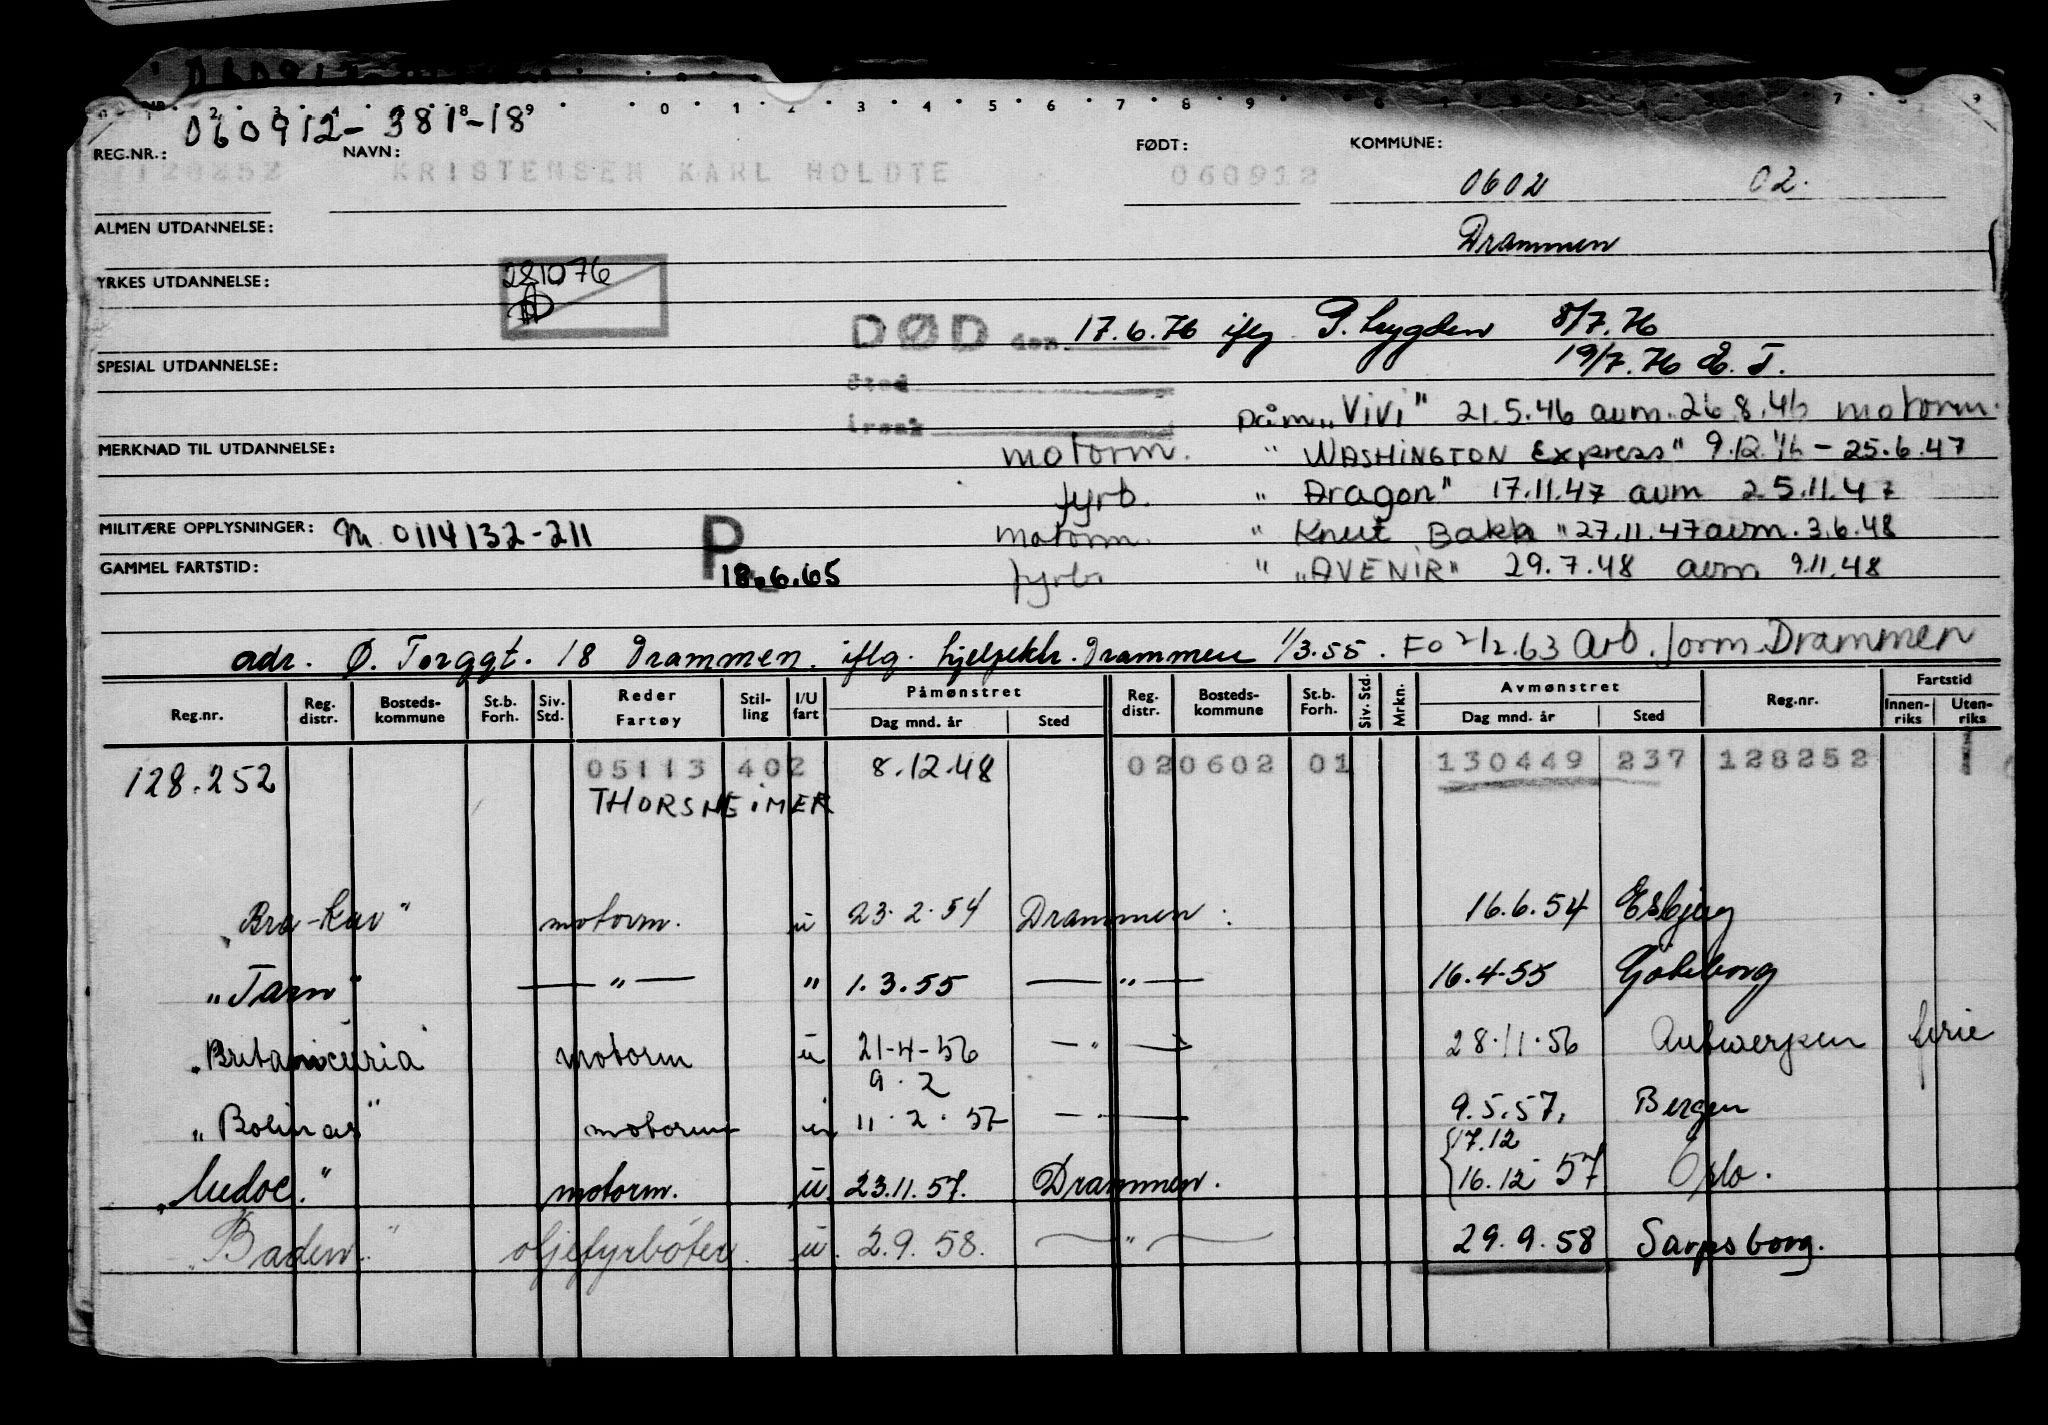 060912-381-18
REG.NR.: NAVN: FØDT: KOMMUNE:
128252 KRISTENSEN KARL HOLDTE 060912 0602 02.
ALMEN UTDANNELSE: Drammen
YRKES UTDANNELSE: 281076
DØD den 17.6.76 iflg P. Lygden 8/7.76
SPESIAL UTDANNELSE: 19/7.76
Sted
årsak påm. "ViVi" 21.5.46 avm. 26.8.46 motorm.
MERKNAD TIL UTDANNELSE: motorm. " WASHINGTON Express" 9.12.46 - 25.6.47
fyrb. " Aragon" 17.11.47 avm 25.11.47
MILITÆRE OPPLYSNINGER: M. 0114132-211 P motorm. " Knut Bakke" 27.11.47 avm. 3.6.48
GAMMEL FARTSTID: 18.6.65 fyrb. " "AVENIR" 29.7.48 avm 9.11.48
adr. Ø. Torggt. 18 Drammen. iflg. hjelpektr. Drammen 1/3.55. Fo 2/2.63 Arb. form. Drammen
Reg.nr. Reg. distr. Bosteds-kommune St.b. Forh. Siv. Std. Reder Fartøy Stil-ling I/U fart Påmønstret Dag mnd. år Sted Reg. distr. Bosteds-kommune St.b. Forh. Siv. Std. Mrkn. Avmønstret Dag mnd. år Sted Reg.nr. Fartstid Innen-riks Uten-riks
128.252 05113 402 8.12.48 020602 01 130449 237 128252
THORSHEIMER
"Bra-Kar" motorm. u 23.2.54 Drammen. 16.6.54 Esbjerg
"Tarn" — " — " 1.3.55 — " — 16.4.55 Göteborg
"Britanicuria motorm u 21-4-56 — " — 28.11.56 Antwerpen ferie
9.2
"Bolinas" motorm u 11.2.57 — " — 9.5.57, Bergen
17.12
"Medoc." motorm. u. 23.11.57. Drammen. 16.12 57 Oslo.
"Baden" oljefyrbøter. u. 2.9.58. — " — 29.9.58 Sarpsborg.